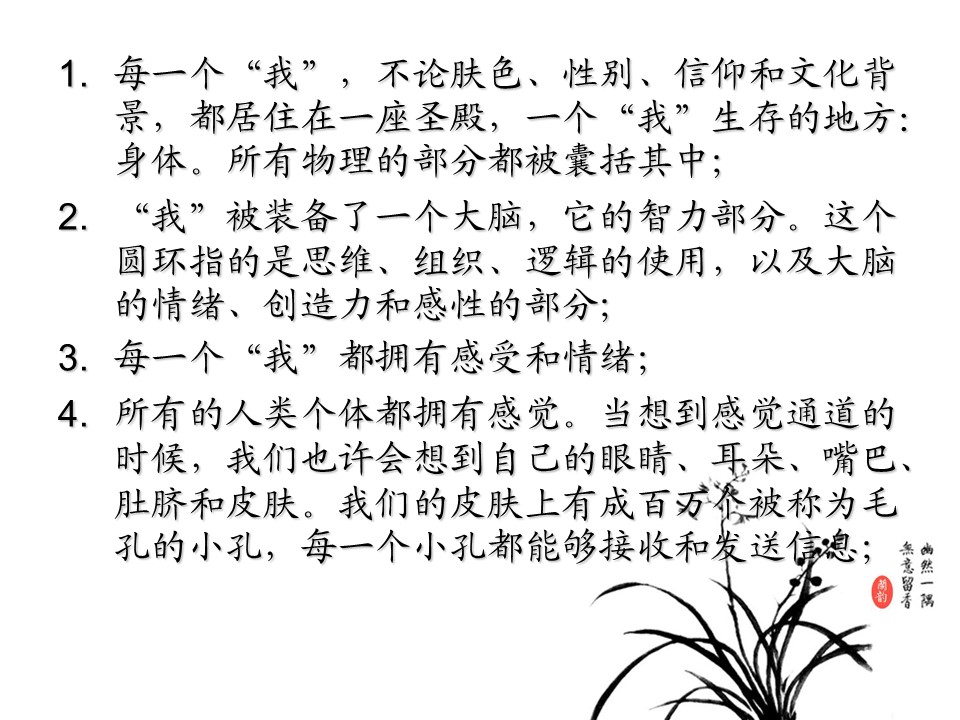 1. 每一个“我”，不论肤色、性别、信仰和文化背
景，都居住在一座圣殿，一个“我”生存的地方：
身体。所有物理的部分都被囊括其中；
2. “我”被装备了一个大脑，它的智力部分。这个
圆环指的是思维、组织、逻辑的使用，以及大脑
的情绪、创造力和感性的部分；
3. 每一个“我”都拥有感受和情绪；
4. 所有的人类个体都拥有感觉。当想到感觉通道的
时候，我们也许会想到自己的眼睛、耳朵、嘴巴、
肚脐和皮肤。我们的皮肤上有成百万个被称为毛
孔的小孔，每一个小孔都能够接收和发送信息；
幽然一隅
無意留香
蘭韵